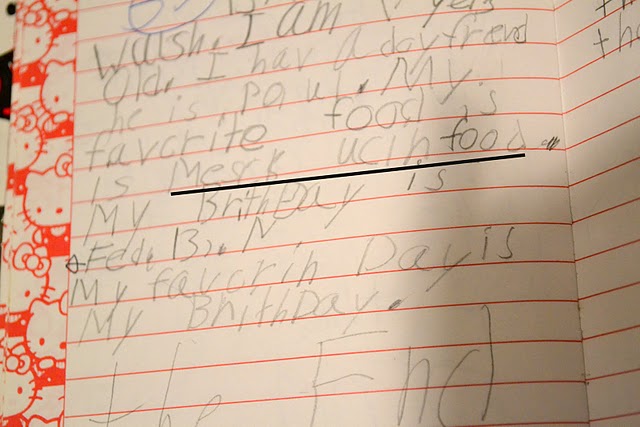 Walsh. I am 7 yers
Old. I hav a doyfrend
he is paul. My
favorite food is
is Mesrk ucin food.
My BrithDay is
Fed. 13. N
My favorih Day is
My BrithDay.
the End
th
tha